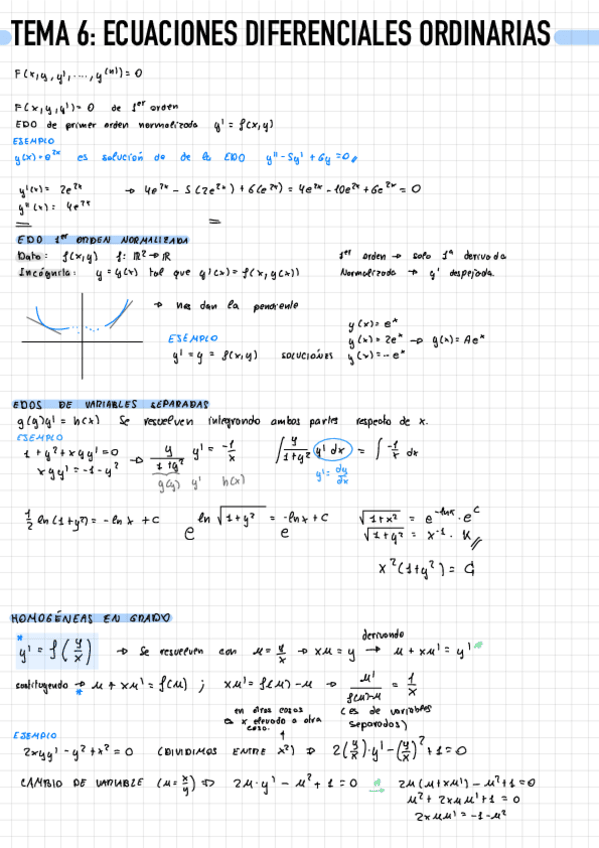 TEMA 6: ECUACIONES DIFERENCIALES ORDINARIAS
F(x, y, y', ..., y⁽ⁿ⁾) = 0
F(x, y, y') = 0 de 1er orden
EDO de primer orden normalizada y' = f(x, y)
EJEMPLO
y(x) = e²ˣ es solución de de la EDO y'' - 5y' + 6y = 0
y'(x) = 2e²ˣ → 4e²ˣ - 5(2e²ˣ) + 6(e²ˣ) = 4e²ˣ - 10e²ˣ + 6e²ˣ = 0
y''(x) = 4e²ˣ
EDO 1er ORDEN NORMALIZADA
Dato: f(x, y) f: ℝ² → ℝ 1er orden → solo 1ª derivada
Incógnita: y = y(x) tal que y'(x) = f(x, y(x)) Normalizada → y' despejada.
→ nos dan la pendiente
EJEMPLO
y' = y = f(x, y) SOLUCIONES
y(x) = eˣ
y(x) = 2eˣ → y(x) = Aeˣ
y(x) = -eˣ
EDOS DE VARIABLES SEPARADAS
g(y)y' = h(x) Se resuelven integrando ambas partes respecto de x.
EJEMPLO
1 + y² + xyy' = 0 → y/(1+y²) y' = -1/x ∫ y/(1+y²) y' dx = ∫ -1/x dx
xyy' = -1 - y²
g(y) y' h(x)
y' = dy/dx
1/2 ln(1+y²) = -ln x + C e^(ln √(1+y²)) = e^(-ln x + C) √(1+x²) = e^(-ln x) · e^C
√(1+y²) = x⁻¹ · K
x²(1+y²) = C
HOMOGÉNEAS EN GRADO
* y' = f(y/x) → Se resuelven con u = y/x → xu = y derivando → u + xu' = y' *
sustituyendo → * u + xu' = f(u) ; xu' = f(u) - u → u'/(f(u)-u) = 1/x
(es de variables separadas)
en otros casos es x elevado a otra cosa.
EJEMPLO
2xyy' - y² + x² = 0 (DIVIDIMOS ENTRE x²) ⇒ 2(y/x)·y' - (y/x)² + 1 = 0
CAMBIO DE VARIABLE (u = x/y) ⇒ 2u·y' - u² + 1 = 0 * 2u(u + xu') - u² + 1 = 0
u² + 2xuu' + 1 = 0
2xuu' = -1 - u²